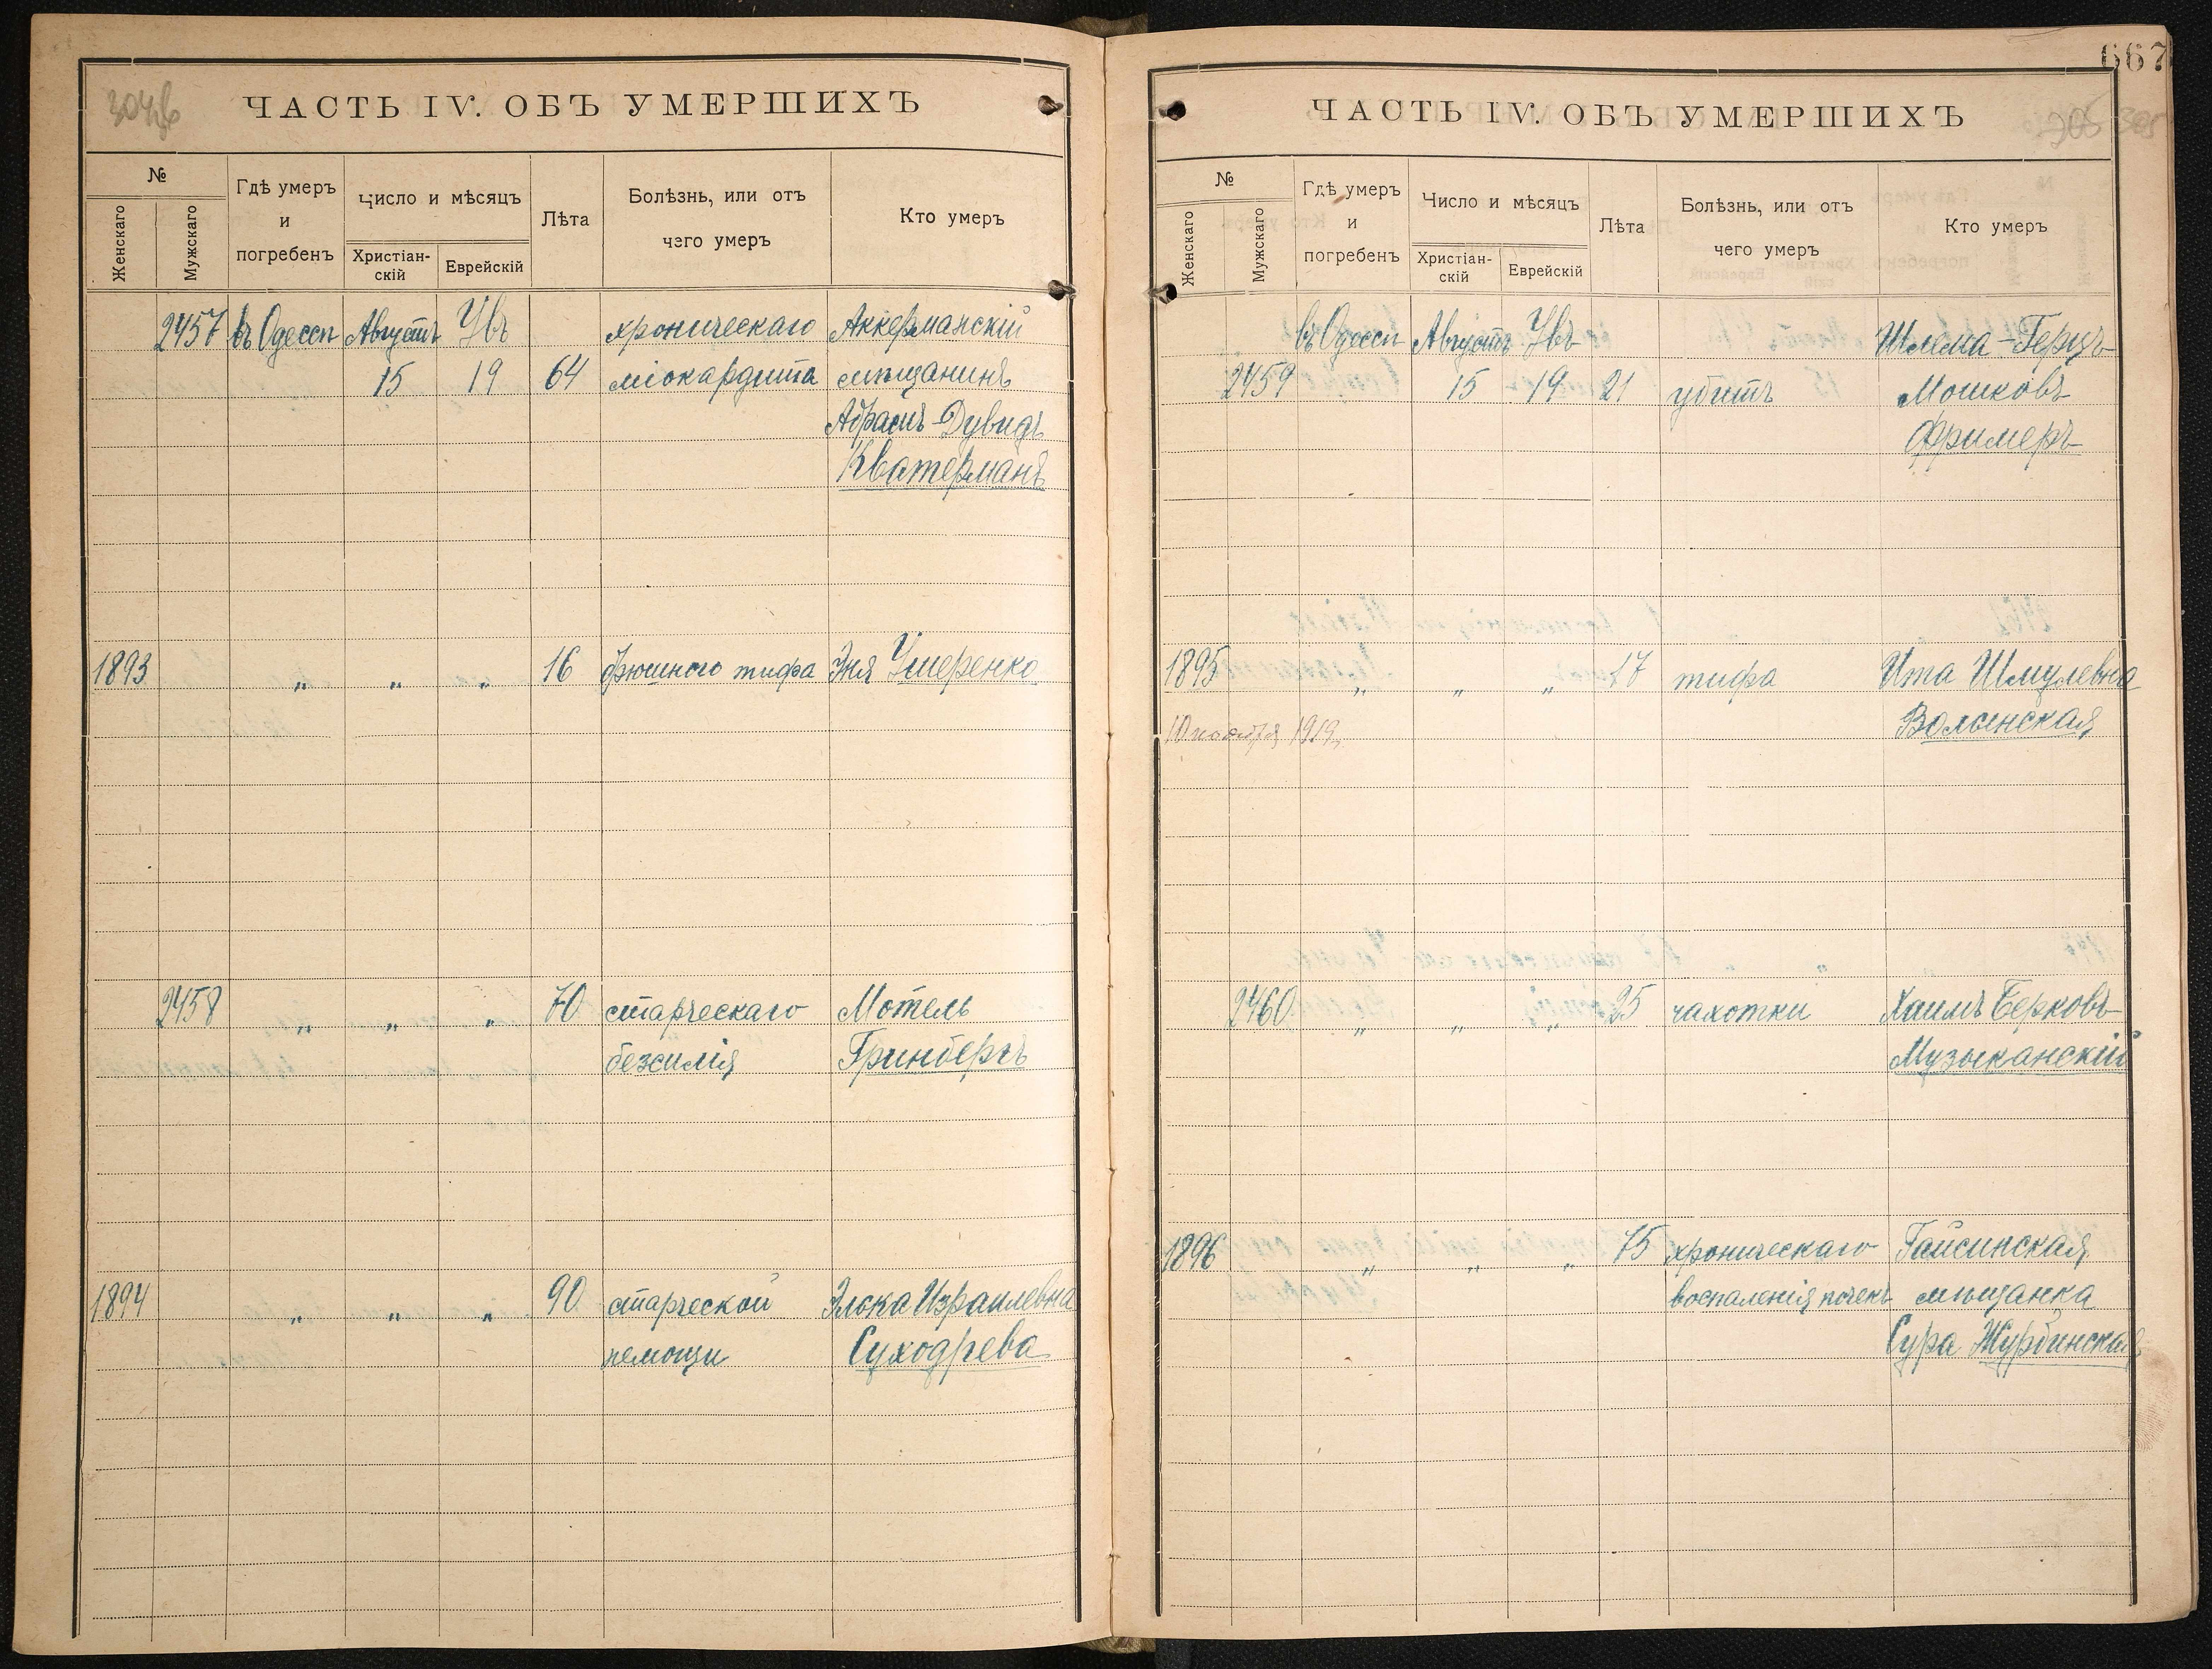 ЧАСТЬ IV. ОБЪ УМЕРШИХЪ
№
Женскаго
Мужскаго
Гдѣ умеръ
и
погребенъ
Число и мѣсяцъ
Христіан-
скій
Еврейскій
Лѣта
Болѣзнь, или отъ
чего умеръ
Кто умеръ
2457 въ Одессѣ Августъ Увъ хроническаго Аккерманскій
15 19 64 міокардита мѣщанинъ
Абрамъ-Дувидъ
Кватерманъ
1893 " " " 16 брюшного тифа Эня Умеренко
2458 " " " 70 старческаго Мотель
безсилія Гринбергъ
1894 " " " 90 старческой Элока Израилевна
немощи Суходрева
667
ЧАСТЬ IV. ОБЪ УМЕРШИХЪ
305
№
Женскаго
Мужскаго
Гдѣ умеръ
и
погребенъ
Число и мѣсяцъ
Христіан-
скій
Еврейскій
Лѣта
Болѣзнь, или отъ
чего умеръ
Кто умеръ
въ Одессѣ Августъ Увъ Шлема-Герцъ
2459 15 19 21 убитъ Мошковъ
Фримеръ
1895 " " " 17 тифа Ита Шмулевна
10 ноября 1919 Волынская
2460 " " " 25 чахотки Хаимъ Берковъ
Музыканскій
1896 " " " 75 хроническаго Гайсинская
воспаленія почекъ мѣщанка
Сура Журбинская